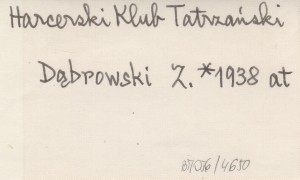 Harcerski Klub Tatrzański
Dąbrowski Z. *1938 at
87056/4650